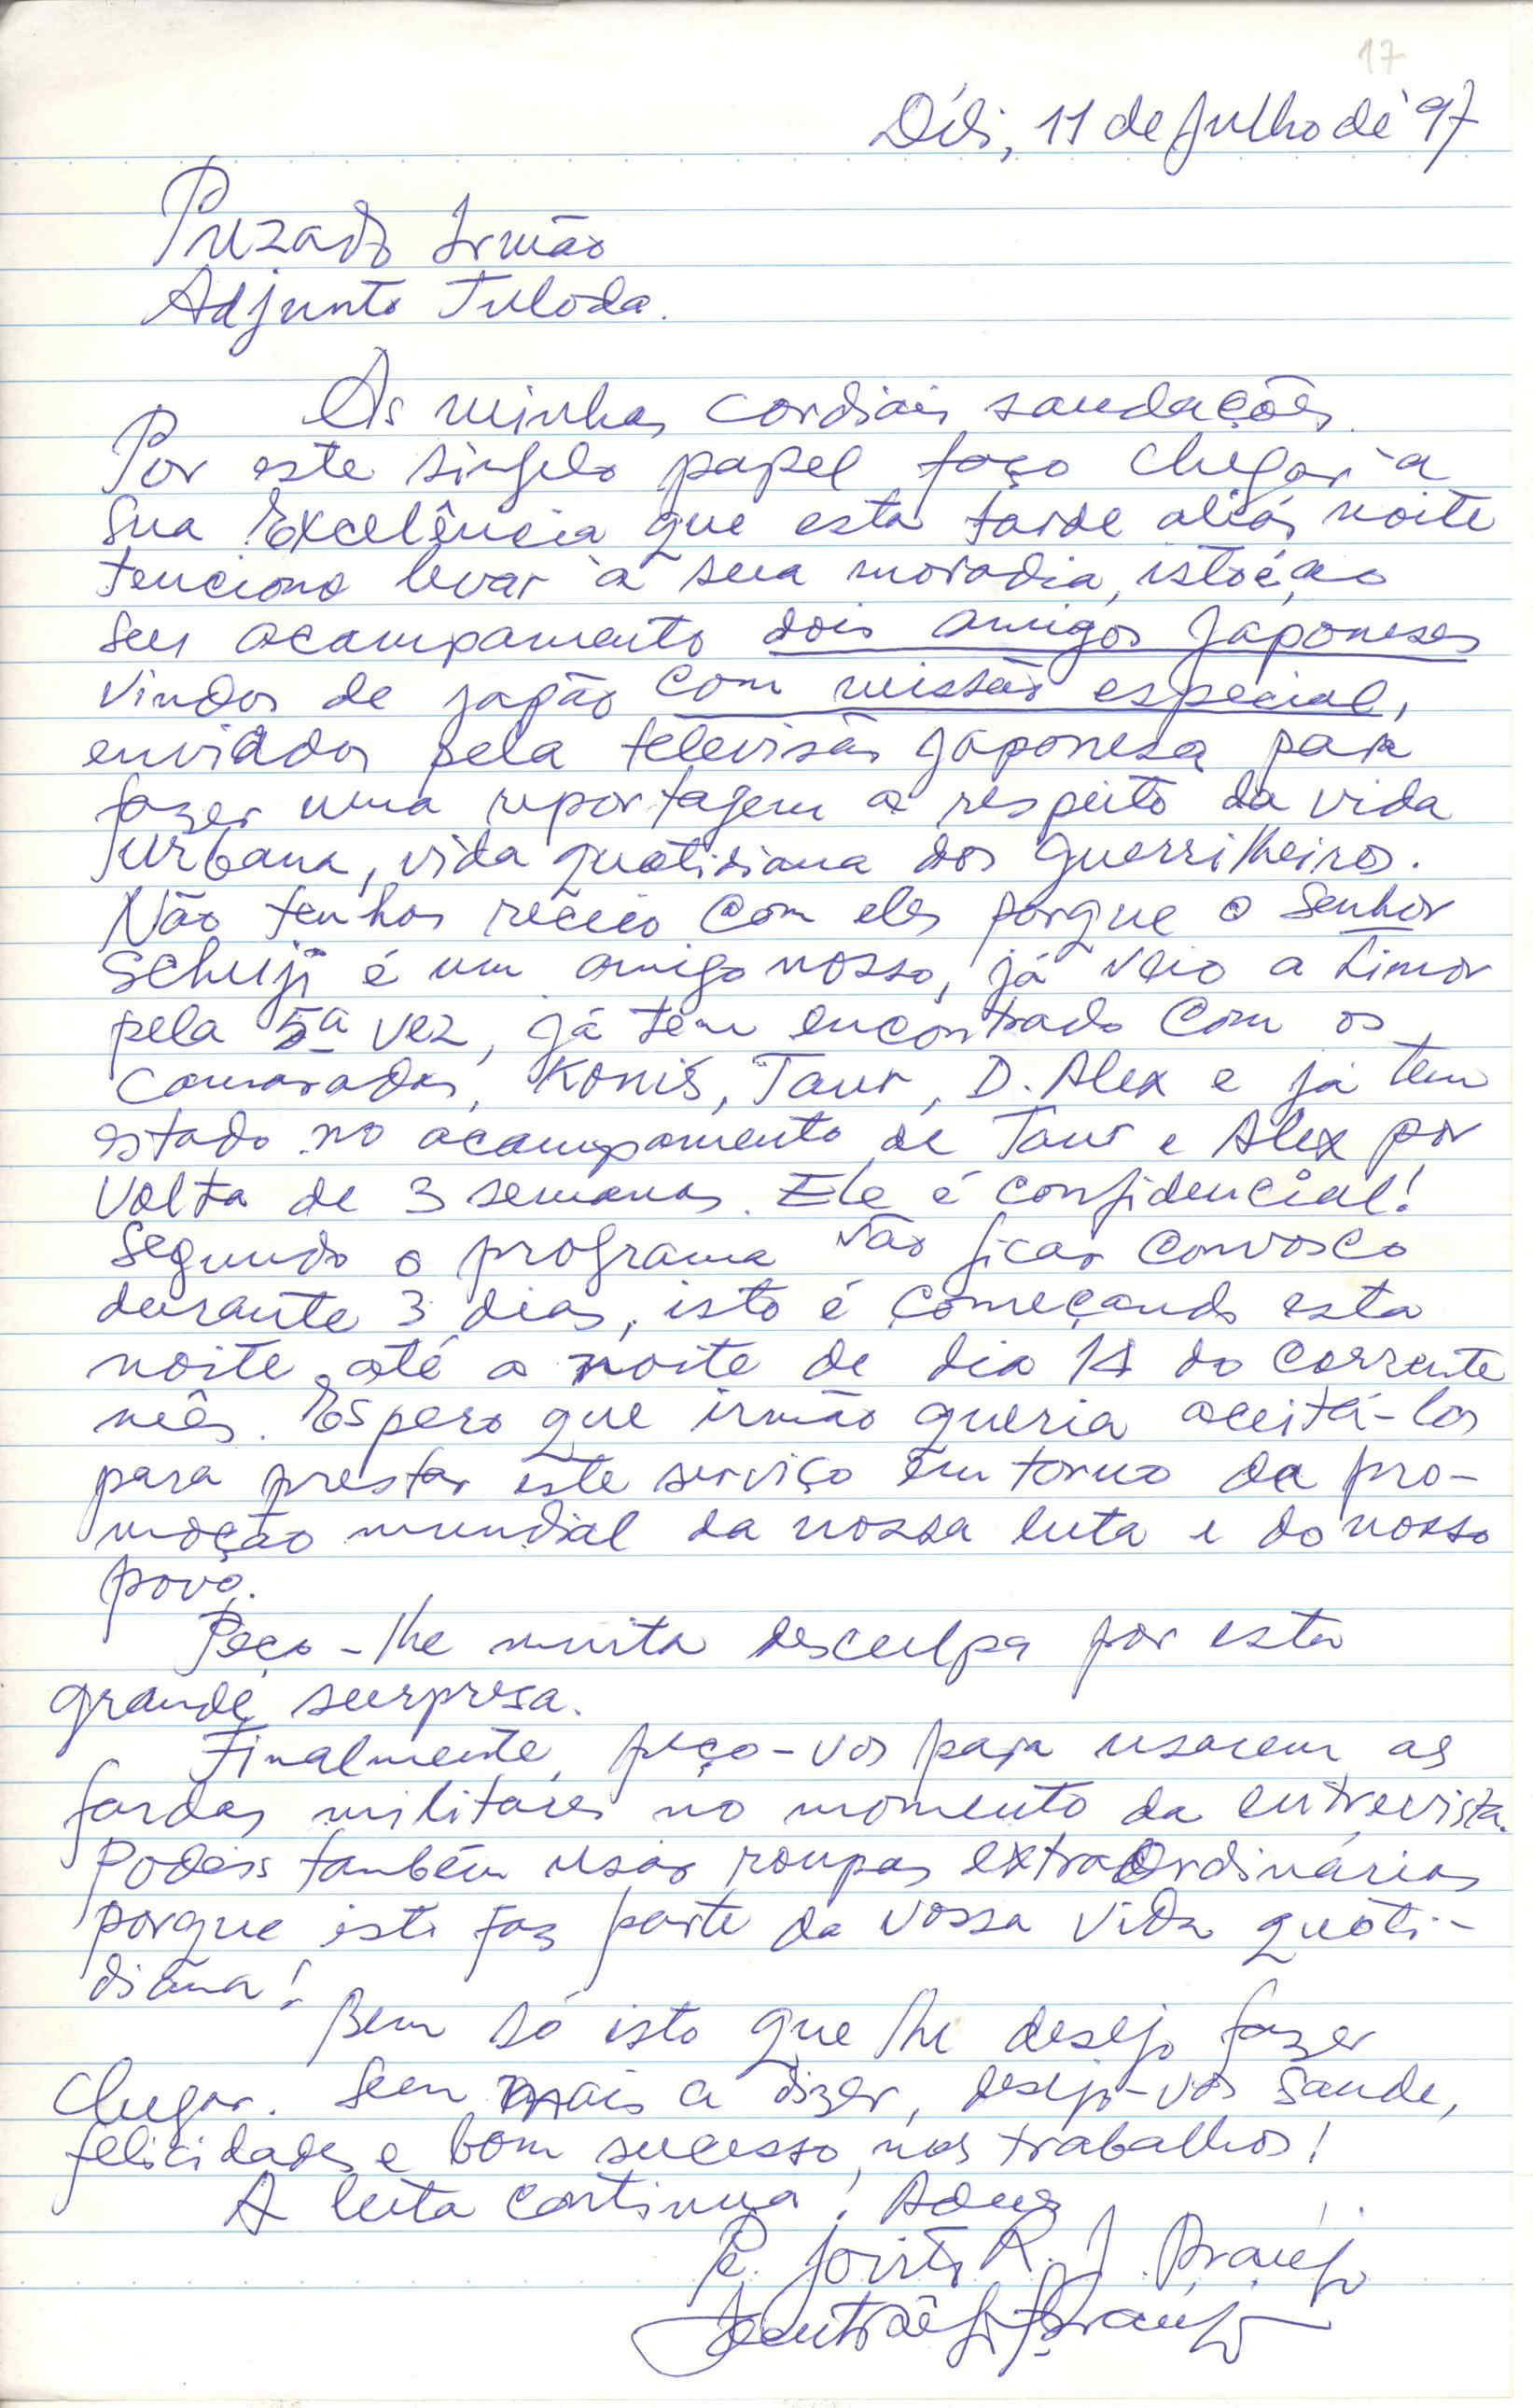 17
Díli, 11 de Julho de 97
Prezado Irmão
Adjunto Tuloda.
As minhas cordiais saudações.
Por este singelo papel faço chegar à
Sua Excelência que esta tarde aliás noite
tenciono levar à sua moradia, isto é, ao
seu acampamento dois amigos Japoneses
vindos de japão com missão especial,
enviados pela televisão Japonesa para
fazer uma reportagem a respeito da vida
urbana, vida quotidiana dos guerrilheiros.
Não tenhas receio com eles porque o Senhor
Schuji é um amigo nosso, já veio a Timor
pela 5ª vez, já tem encontrado com os
camaradas, Konis, Taur, D. Alex e já tem
estado no acampamento de Taur e Alex por
volta de 3 semanas. Ele é confidencial!
Segundo o programa vão ficar convosco
durante 3 dias, isto é começando esta
noite até a noite de dia 14 do corrente
mês. Espero que irmão queria aceitá-los
para prestar este serviço em torno da pro-
moção mundial da nossa luta e do nosso
povo.
Peço-lhe muita desculpa por esta
grande surpresa.
Finalmente, peço-vos para usarem as
fardas militares no momento da entrevista.
Podeis também usar roupas extraOrdinárias
porque isto faz parte da vossa vida quoti-
diana!
Bem só isto que lhe desejo fazer
chegar. Sem mais a dizer, desejo-vos saúde,
felicidades e bom sucesso nos trabalhos!
A luta continua! Adeus
Pe. R. J. Araújo